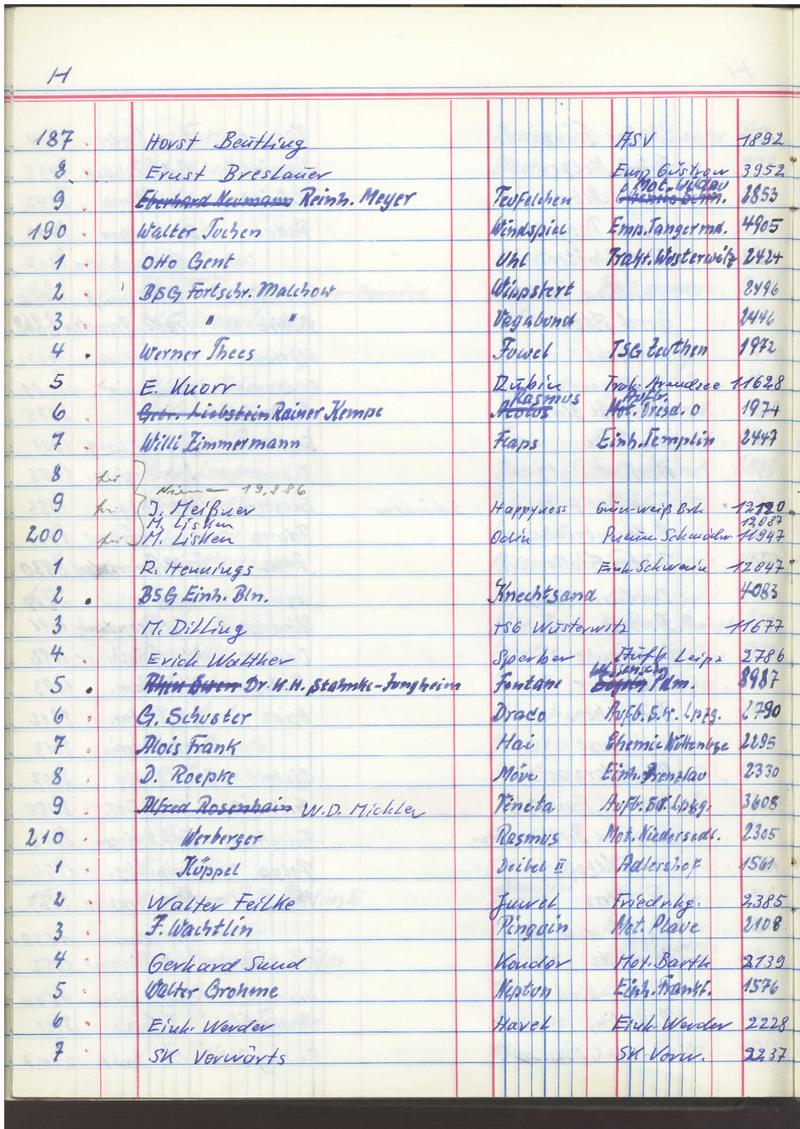 H
187 Horst Beutling ASV 1892
8 Ernst Breslauer Emp. Güstrow 3952
9 Eberhard Neumann Reinh. Meyer Teufelchen Mot. 2853
190 Walter Tuchen Windspiel Emp. Tangermd. 4905
1 Otto Gent Uhl Trakt. Wusterwitz 2424
2 BSG Fortschr. Malchow Wippstert 2496
3 " " Vagabund 2446
4 . Werner Thees Juwel TSG Zeuthen 1972
5 E. Knorr Rubin Trak. Arendsee 11628
Rasmus Aufb.
6 Gebr. Liebstein Rainer Kempe Aeolus Mot. Dresd. O 1974
7 Willi Zimmermann Faps Einh. Templin 2447
8 frei
19.3.86
9 frei J. Meißner Happyness Grün-weiß Brb. 12120
M. Lisken 12087
200 frei M. Lisken Odin 11947
1 R. Hennings Einh. Schwerin 12047
2 . BSG Einh. Bln. Knechtsand 4083
3 M. Dilling TSG Wusterwitz 11677
4 Erich Walther Sperber Aufb. Leipz 2786
5 . Dr. H. H. Stahnke-Jungheim Fontane Pdm. 8987
6 G. Schuster Drado Aufb. S.W. Lpzg. 2790
7 Alois Frank Hai Chemie Wittenbge 2295
8 D. Roepke Möve Einh. Prenzlau 2330
9 Alfred Rosenhain W.D. Michler Vineta Aufb. SW. Lpzg. 3608
210 Werberger Rasmus Mot. Niedersedl. 2305
1 Küppel Deibel II Adlershof 1561
2 Walter Feilke Juwel Friedrhg. 2385
3 F. Wachtlin Pinguin Mot. Plaue 2108
4 Gerhard Sund Kondor Mot. Barth 2139
5 Walter Grohme Neptun Einh. Frankf. 1576
6 Einh. Werder Havel Einh. Werder 2228
7 SK Vorwärts SK Vorw. 2237